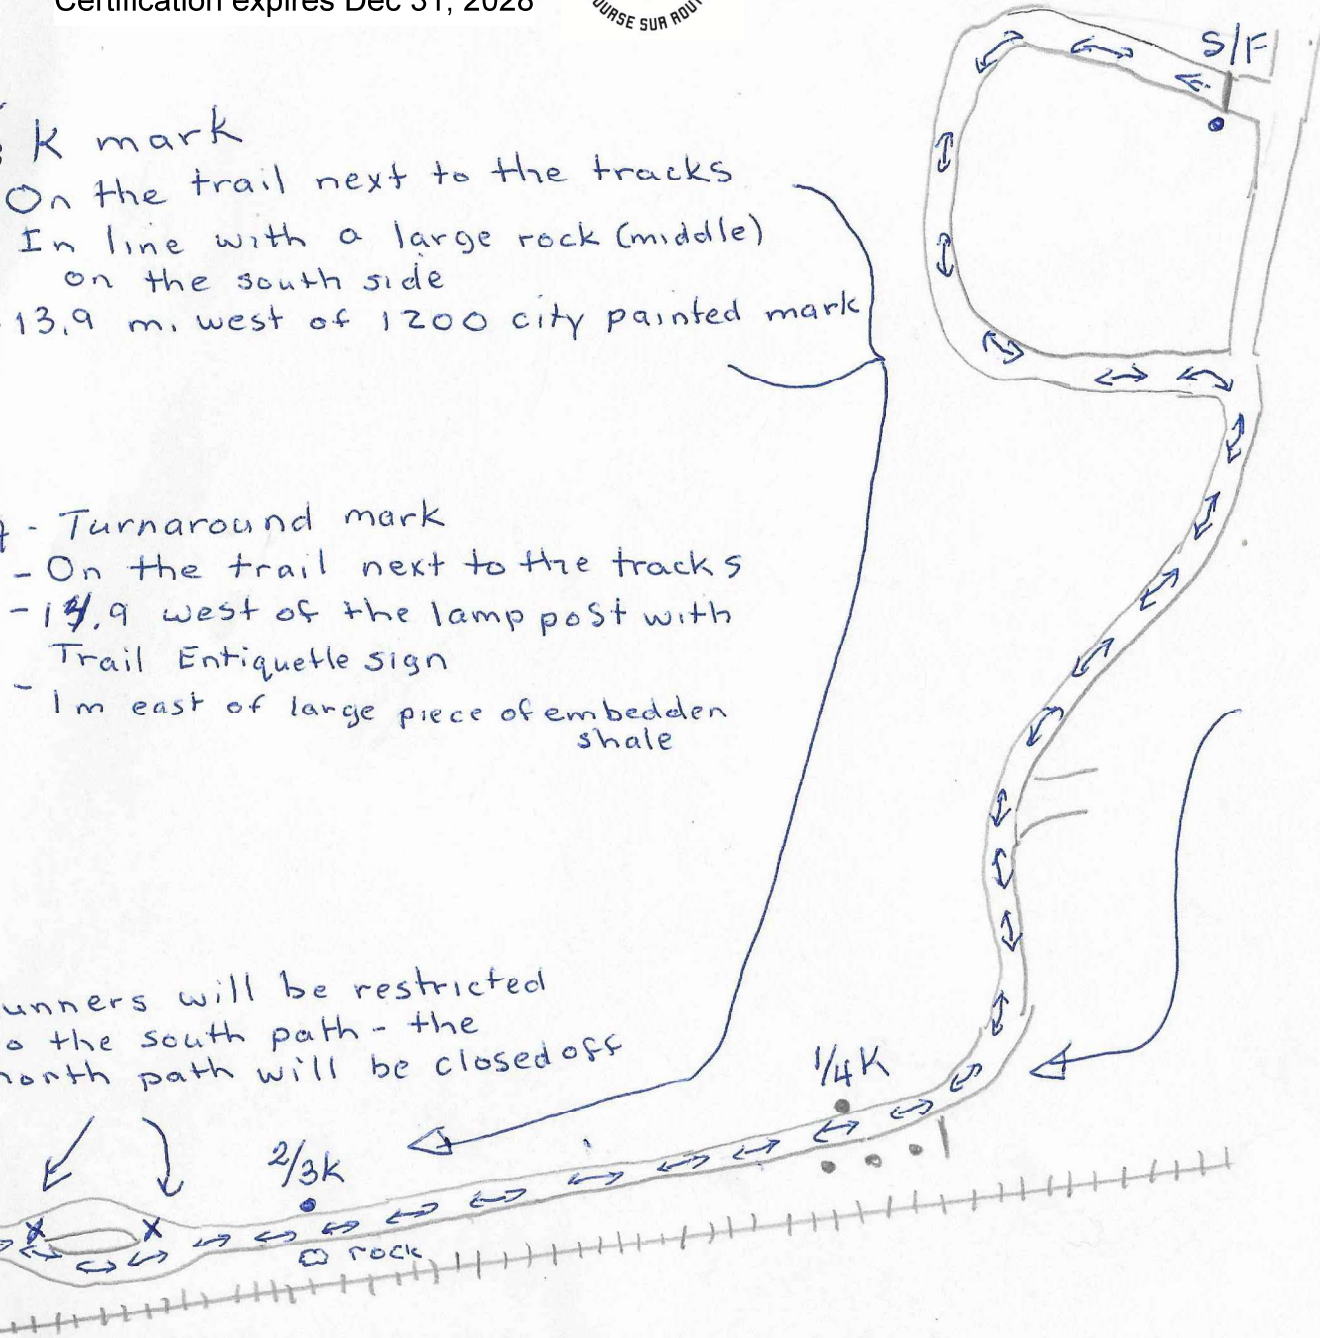 Certification expires Dec 31, 2028
OURSE SUR ROUT
S/F
K mark
On the trail next to the tracks
In line with a large rock (middle)
on the south side
13.9 m. west of 1200 city painted mark
- Turnaround mark
- On the trail next to the tracks
- west of the lamp post with
Trail Entiquette sign
- 1m east of large piece of embedden
shale
unners will be restricted
o the south path - the
north path will be closed off
1/4K
2/3K
rock